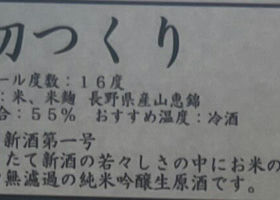 つくり
ール度数：１６度
：米、米麹 長野県産山恵錦
合：５５％ おすすめ温度：冷酒
新酒第一号
たて新酒の若々しさの中にお米の
無濾過の純米吟醸生原酒です。